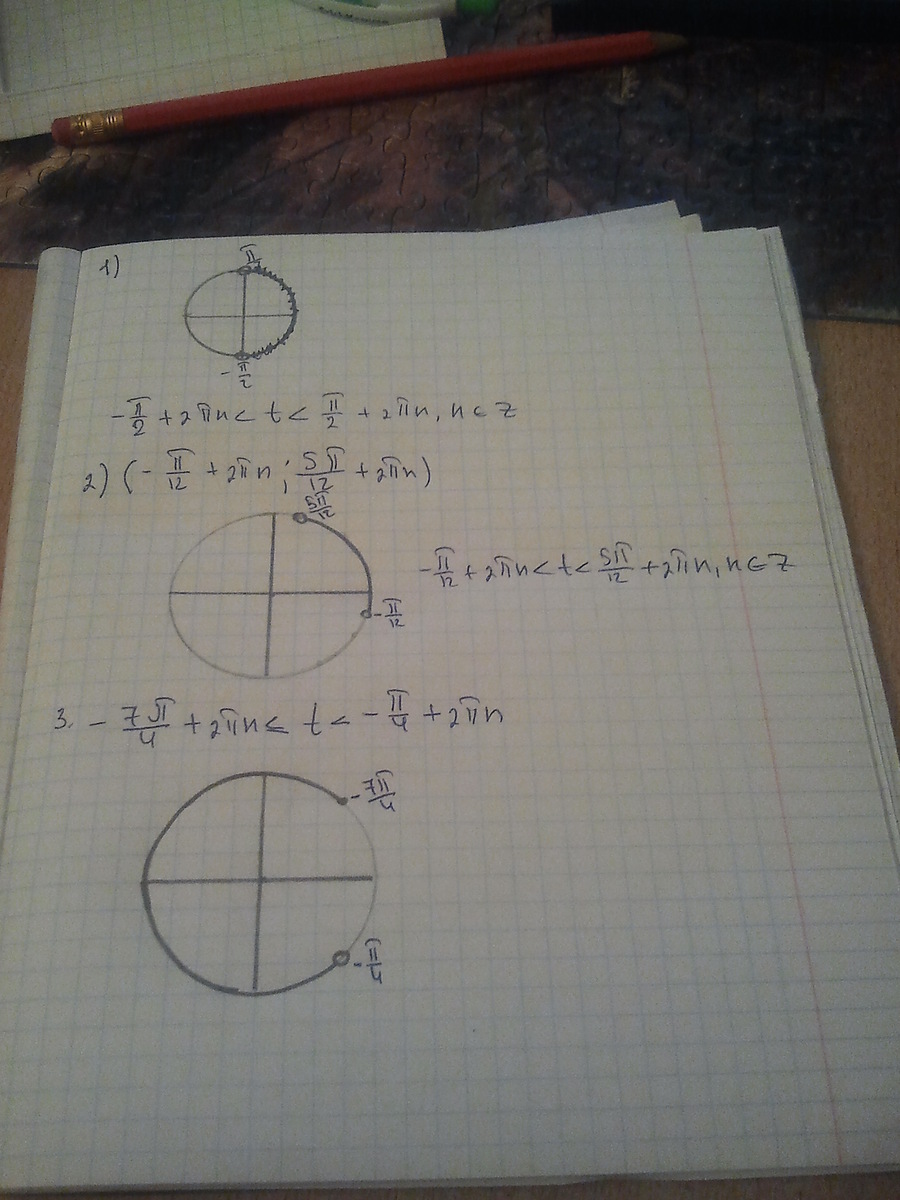 1)
π/2
-π/2
-π/2 + 2πn < t < π/2 + 2πn, n ∈ Z
2) (-π/12 + 2πn ; 5π/12 + 2πn)
5π/12
-π/12 + 2πn < t < 5π/12 + 2πn, n ∈ Z
-π/12
3. -7π/4 + 2πn ≤ t < -π/4 + 2πn
-7π/4
-π/4